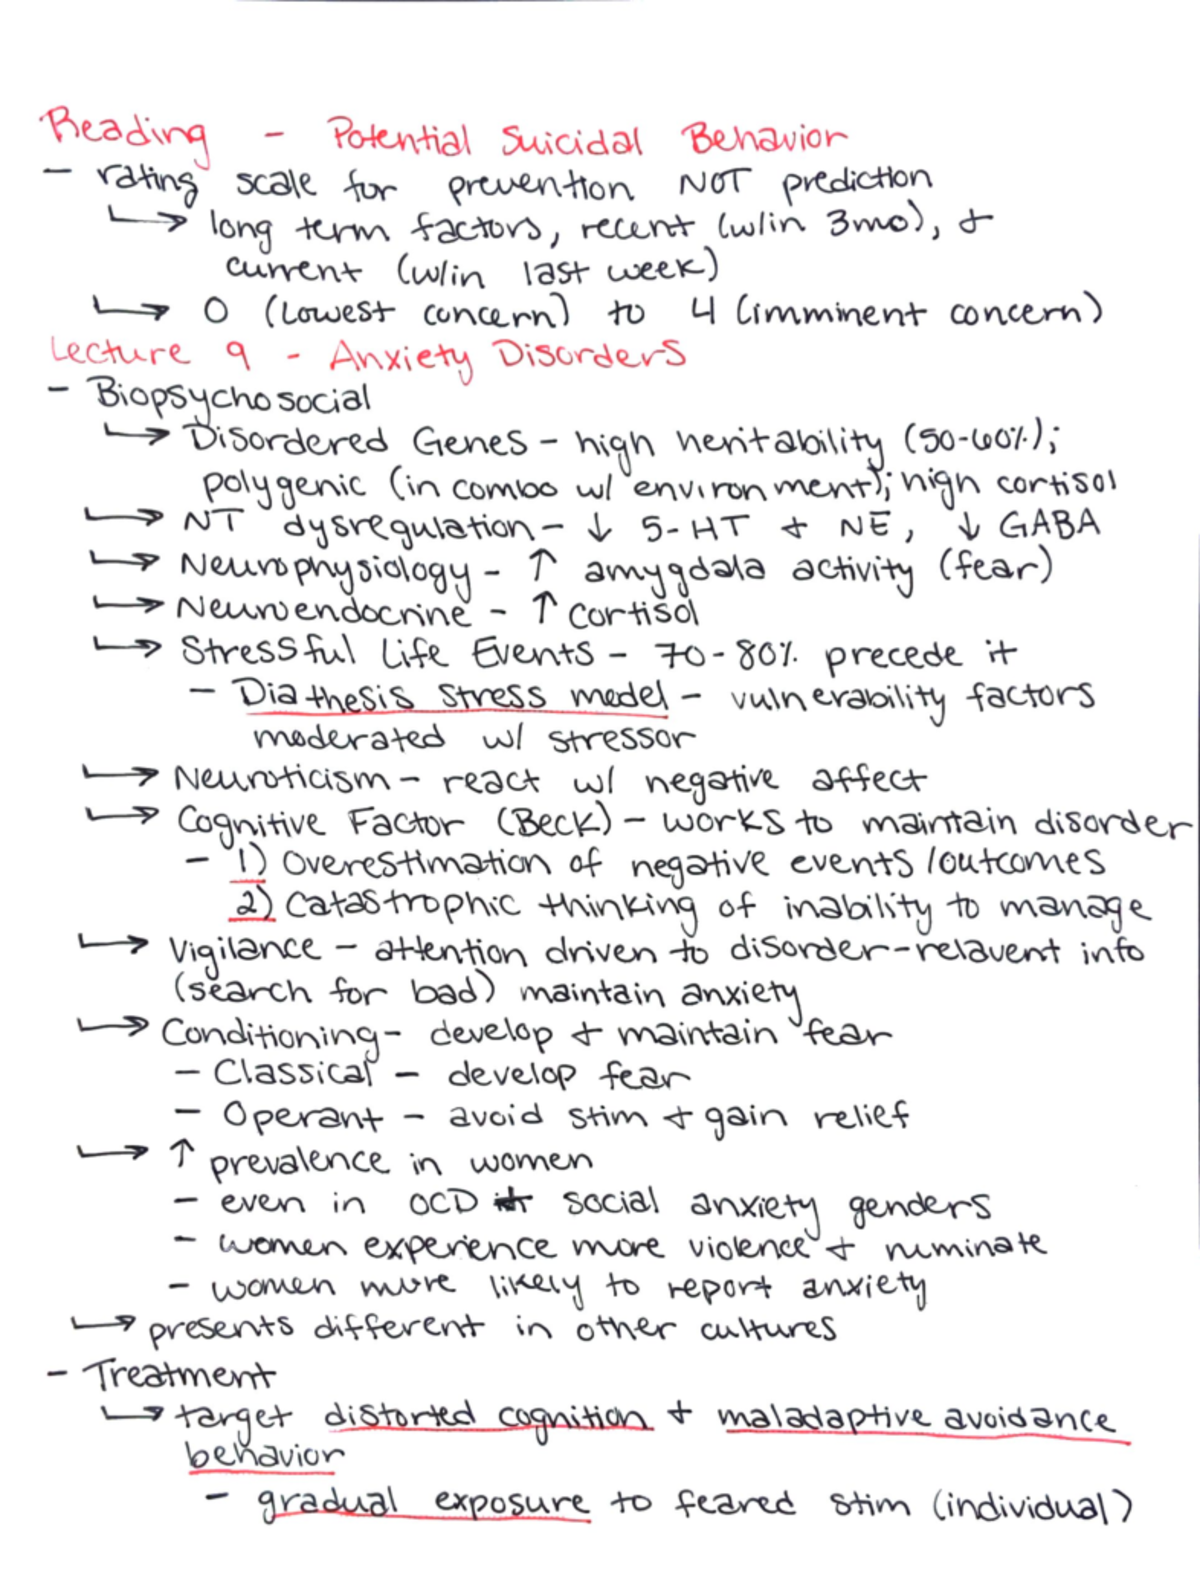 Reading - Potential Suicidal Behavior
- rating scale for prevention NOT prediction
↳ long term factors, recent (w/in 3mo), +
current (w/in last week)
↳ 0 (lowest concern) to 4 (imminent concern)
Lecture 9 - Anxiety Disorders
- Biopsychosocial
↳ Disordered Genes - high heritability (50-60%);
polygenic (in combo w/ environment); high cortisol
↳ NT dysregulation - ↓ 5-HT + NE, ↓ GABA
↳ Neurophysiology - ↑ amygdala activity (fear)
↳ Neuroendocrine - ↑ cortisol
↳ Stressful Life Events - 70-80% precede it
- Diathesis stress model - vulnerability factors
moderated w/ stressor
↳ Neuroticism - react w/ negative affect
↳ Cognitive Factor (Beck) - works to maintain disorder
- 1) Overestimation of negative events/outcomes
2) Catastrophic thinking of inability to manage
↳ Vigilance - attention driven to disorder-relavent info
(search for bad) maintain anxiety
↳ Conditioning - develop + maintain fear
- Classical - develop fear
- Operant - avoid stim + gain relief
↳ ↑ prevalence in women
- even in OCD + social anxiety genders
- women experience more violence + ruminate
- women more likely to report anxiety
↳ presents different in other cultures
- Treatment
↳ target distorted cognition + maladaptive avoidance
behavior
- gradual exposure to feared stim (individual)